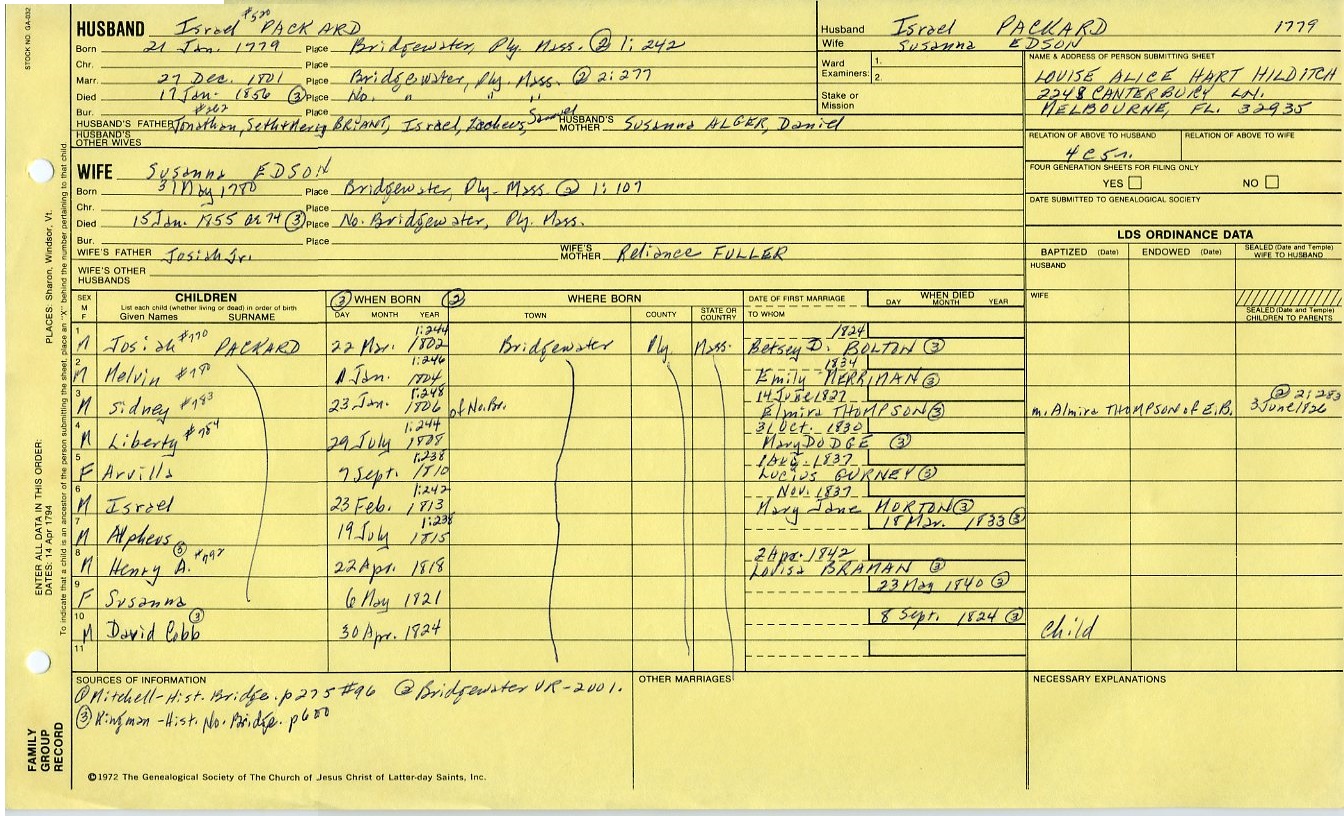 STOCK NO. GA-032
HUSBAND Israel #520 PACKARD
Born 21 Jan. 1779 Place Bridgewater, Ply. Mass. ② 1:242
Chr. Place
Marr. 27 Dec. 1801 Place Bridgewater, Ply. Mass. ② 2:277
Died 17 Jan. 1856 ③ Place No. " " "
Bur. Place
#262
HUSBAND'S FATHER Jonathan, Seth+Mercy BRYANT, Israel, Zacheus, Samuel HUSBAND'S MOTHER Susanna ALGER, Daniel
HUSBAND'S OTHER WIVES
WIFE Susanna EDSON
Born 31 May 1780 Place Bridgewater, Ply. Mass. ② 1:107
Chr. Place
Died 15 Jan. 1855 ae 74 ③ Place No. Bridgewater, Ply. Mass.
Bur. Place
WIFE'S FATHER Josiah Jr. WIFE'S MOTHER Reliance FULLER
WIFE'S OTHER HUSBANDS
Husband Israel PACKARD 1779
Wife Susanna EDSON
Ward Examiners: 1.
2.
Stake or Mission
NAME & ADDRESS OF PERSON SUBMITTING SHEET
LOUISE ALICE HART HILDITCH
2248 CANTERBURY LN.
MELBOURNE, FL. 32935
RELATION OF ABOVE TO HUSBAND RELATION OF ABOVE TO WIFE
4c5r.
FOUR GENERATION SHEETS FOR FILING ONLY
YES NO
DATE SUBMITTED TO GENEALOGICAL SOCIETY
LDS ORDINANCE DATA
BAPTIZED (Date) ENDOWED (Date) SEALED (Date and Temple) WIFE TO HUSBAND
HUSBAND
WIFE
SEALED (Date and Temple) CHILDREN TO PARENTS
SEX M F CHILDREN ② WHEN BORN ② WHERE BORN DATE OF FIRST MARRIAGE WHEN DIED
List each child (whether living or dead) in order of birth
Given Names SURNAME DAY MONTH YEAR TOWN COUNTY STATE OR COUNTRY TO WHOM DAY MONTH YEAR
1 M Josiah #770 PACKARD 22 Mar. 1802 1:244 Bridgewater Ply. Mass. 1824 Betsey D. BOLTON ③
2 M Melvin #780 1 Jan. 1804 1:246 1834 Emily MERRIMAN ③
3 M Sidney #783 23 Jan. 1806 1:248 of No.Br. 14 June 1827 Elmira THOMPSON ③ m. Almira THOMPSON of E.B. ② 2:283 3 June 1826
4 M Liberty #784 29 July 1808 1:244 31 Oct. 1830 Mary DODGE ③
5 F Arvilla 7 Sept. 1810 1:238 1 Aug. 1837 Lucius GURNEY ③
6 M Israel 23 Feb. 1813 1:242 Nov. 1837 Mary Jane MORTON ③
7 M Alpheus 19 July 1815 1:238 18 Mar. 1833 ③
8 M Henry A. ③ #792 22 Apr. 1818 2 Apr. 1842 Louisa BRAMAN ③
9 F Susanna 6 May 1821 23 May 1840 ③
10 M David Cobb ③ 30 Apr. 1824 8 Sept. 1824 ③ Child
11
SOURCES OF INFORMATION
① Mitchell-Hist. Bridge. p275 #96 ② Bridgewater VR-2001.
③ Kingman-Hist. No. Bridge. p600
OTHER MARRIAGES
NECESSARY EXPLANATIONS
©1972 The Genealogical Society of The Church of Jesus Christ of Latter-day Saints, Inc.
FAMILY GROUP RECORD
ENTER ALL DATA IN THIS ORDER:
DATES: 14 Apr 1794
PLACES: Sharon, Windsor, Vt.
To indicate that a child is an ancestor of the person submitting the sheet, place an "X" behind the number pertaining to that child.